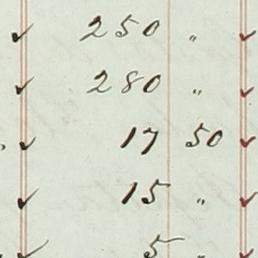 ✓ 250 " ✓
✓ 280 " ✓
✓ 17 50 ✓
✓ 15 " ✓
✓ 5 "